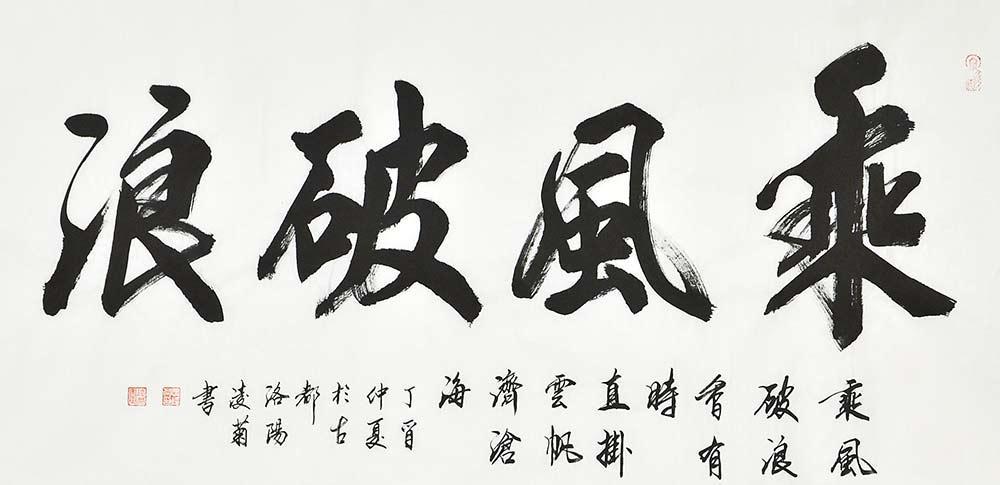 乘風破浪
乘風
破浪
會有
時
直掛
雲帆
濟滄
海
丁酉
仲夏
於古
都
洛陽
凌菊
書